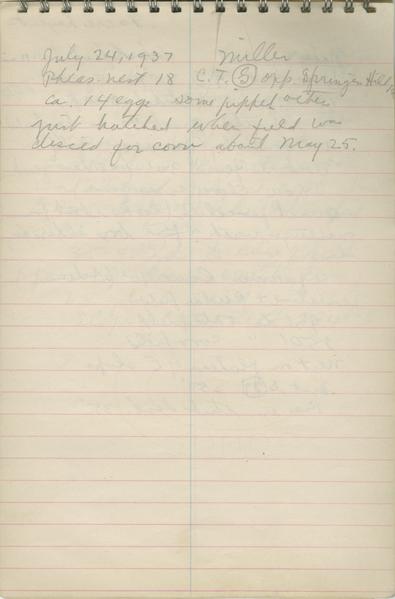 July 24, 1937 Miller
Pheas. nest 18 C.T. (5) opp. Springer Hill
ca. 14 eggs some pipped others
just hatched when field was
disced for corn about May 25.